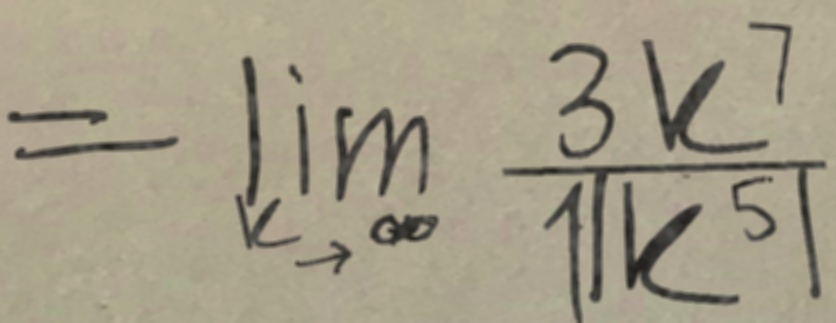 = lim_{k→∞} \frac{3k^7}{1|k^5|}